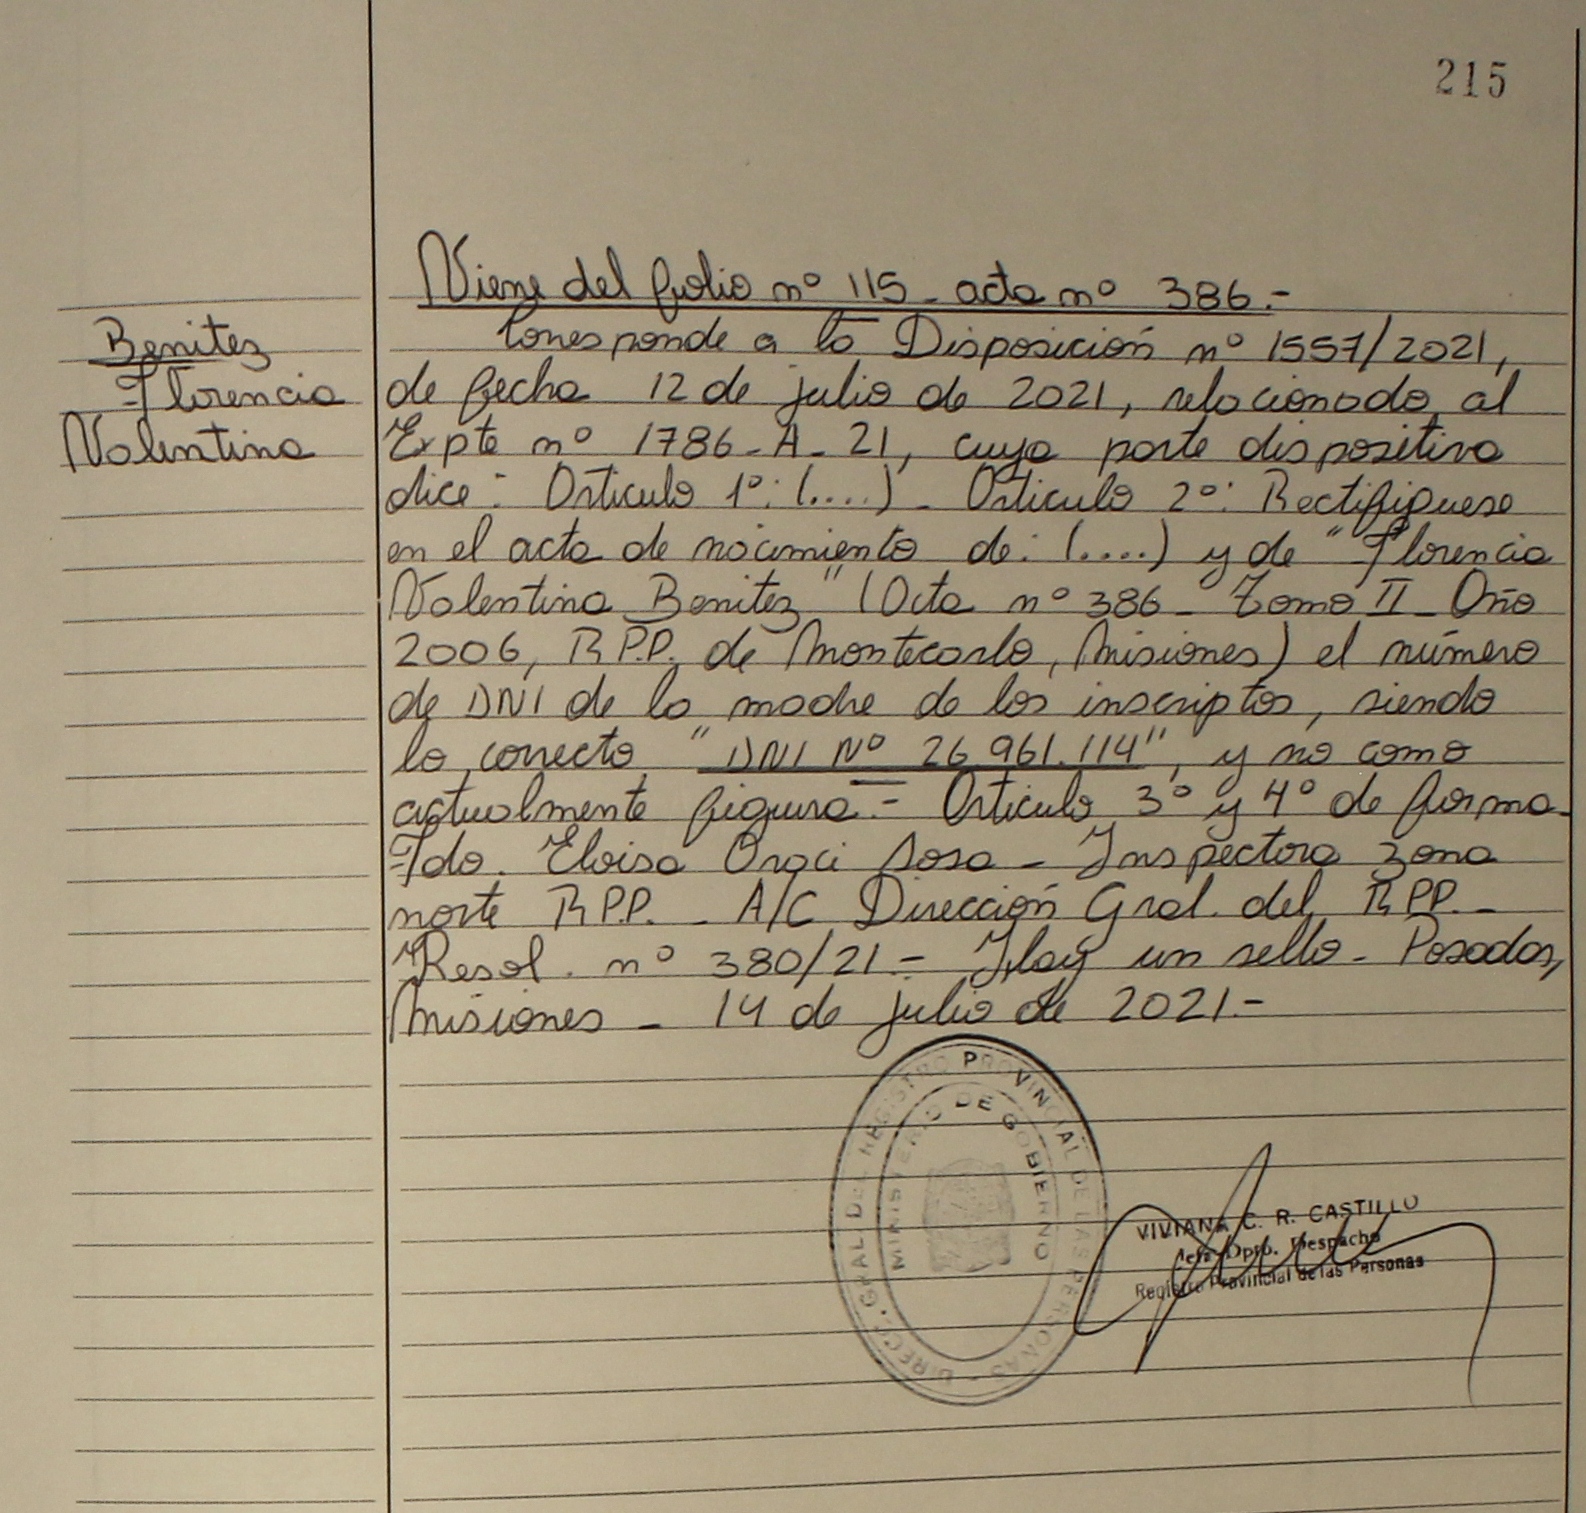 215
Viene del folio nº 115 - acta nº 386.-
Benitez
Florencia
Valentina
Corresponde a la Disposición nº 1557/2021,
de fecha 12 de julio de 2021, relacionado al
Expte nº 1786-A-21, cuya parte dispositiva
dice: Articulo 1º: (....) - Articulo 2º: Rectifiquese
en el acta de nacimiento de: (....) y de "Florencia
Valentina Benitez" (Acta nº 386 - Tomo II - Año
2006, R.P.P. de Montecarlo, Misiones) el número
de DNI de la madre de los inscriptos, siendo
lo correcto "DNI Nº 26.961.114", y no como
actualmente figura.- Articulo 3º y 4º de forma-
Fdo. Eloisa Araci Sosa - Inspectora zona
norte R.P.P. - A/C Dirección Gral. del R.P.P.-
Resol. nº 380/21.- Hay un sello - Posadas,
Misiones - 14 de julio de 2021.-
DIRECC. GRAL. DEL REGISTRO PROVINCIAL DE LAS PERSONAS -
MINISTERIO DE GOBIERNO
VIVIANA C. R. CASTILLO
Jefa Dpto. Despacho
Registro Provincial de las Personas